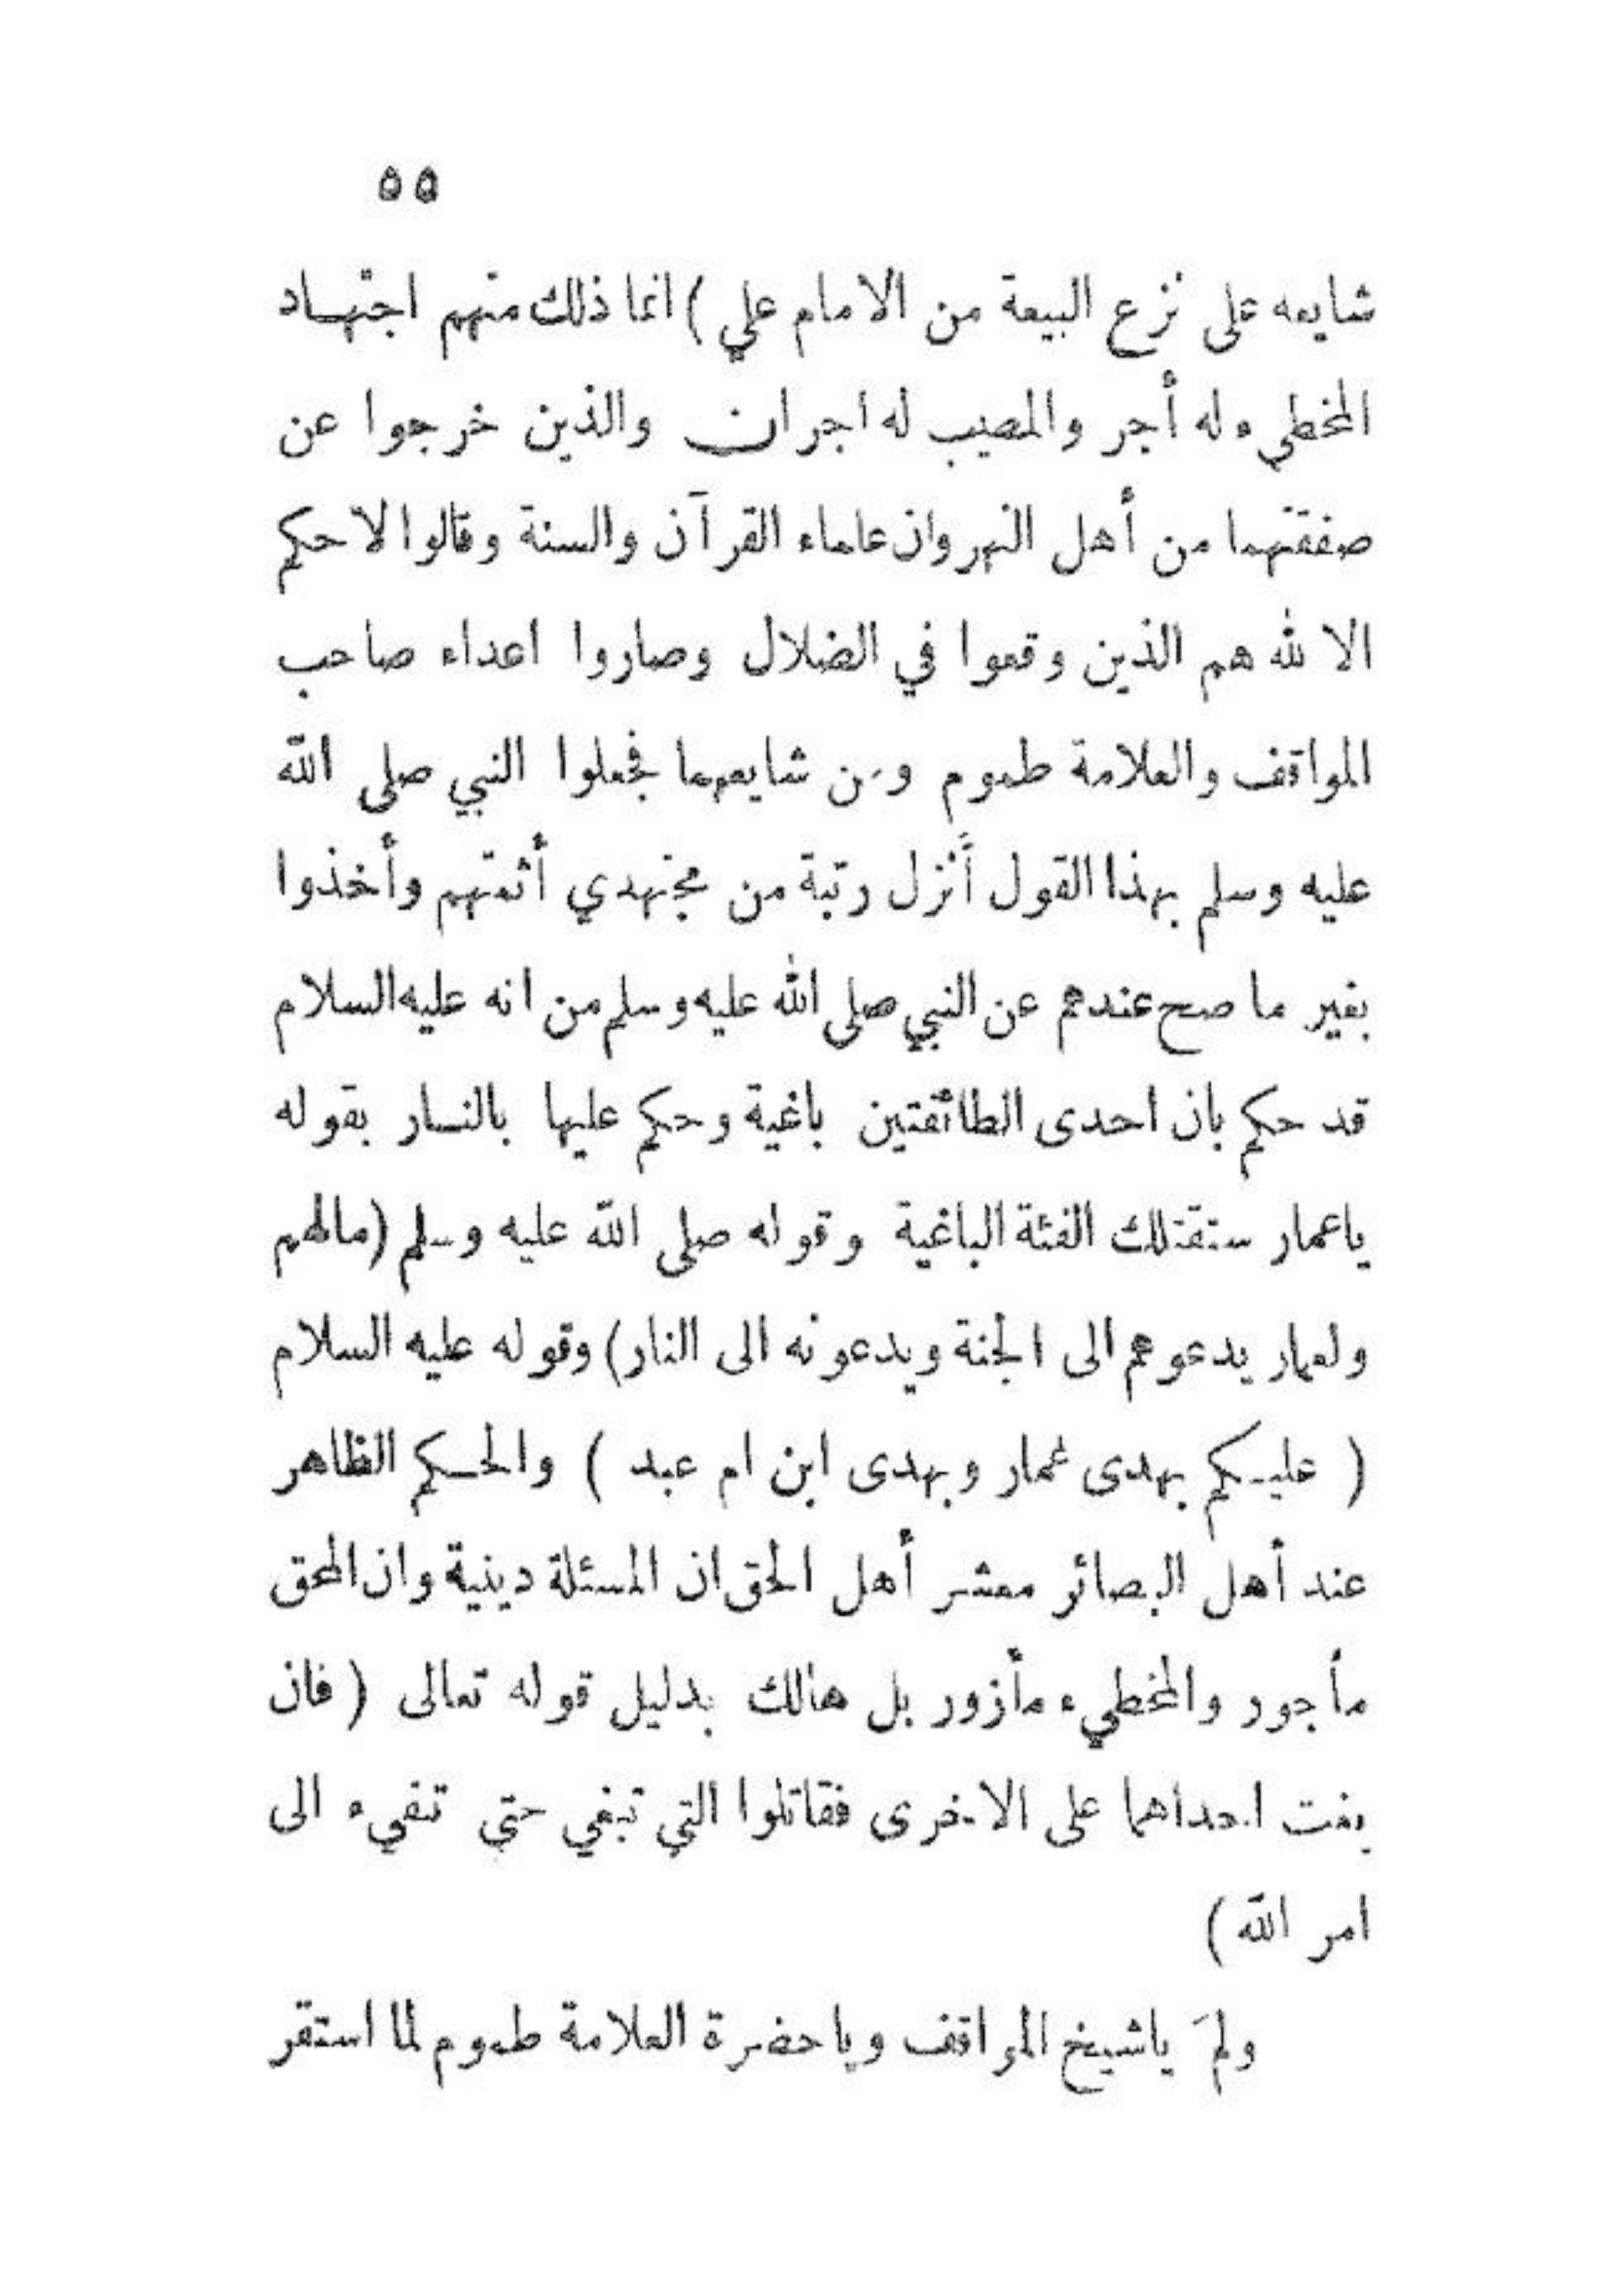 ٥٥
شايعه على نزع البيعة من الامام علي ) انما ذلك منهم اجتهاد
المخطيء له أجر والمصيب له اجران والذين خرجوا عن
صفقتهما من أهل النهروان علماء القرآن والسنة وقالوا لا حكم
الا لله هم الذين وقعوا في الضلال وصاروا اعداء صاحب
المواقف والعلامة طموم ومن شايعهما فجعلوا النبي صلى الله
عليه وسلم بهذا القول أنزل رتبة من مجتهدي أئمتهم وأخذوا
بغير ما صح عندهم عن النبي صلى الله عليه وسلم من انه عليه السلام
قد حكم بان احدى الطائفتين باغية وحكم عليها بالنار بقوله
ياعمار ستقتلك الفئة الباغية وقوله صلى الله عليه وسلم (مالهم
ولعمار يدعوهم الى الجنة ويدعونه الى النار) وقوله عليه السلام
( عليكم بهدى عمار وبهدى ابن ام عبد ) والحكم الظاهر
عند أهل البصائر معشر أهل الحق ان المسئلة دينية وان المحق
مأجور والمخطيء مأزور بل هالك بدليل قوله تعالى ( فان
بغت احداهما على الاخرى فقاتلوا التي تبغي حتى تفيء الى
امر الله )
ولمَ ياشيخ المواقف ويا حضرة العلامة طموم لما استقر